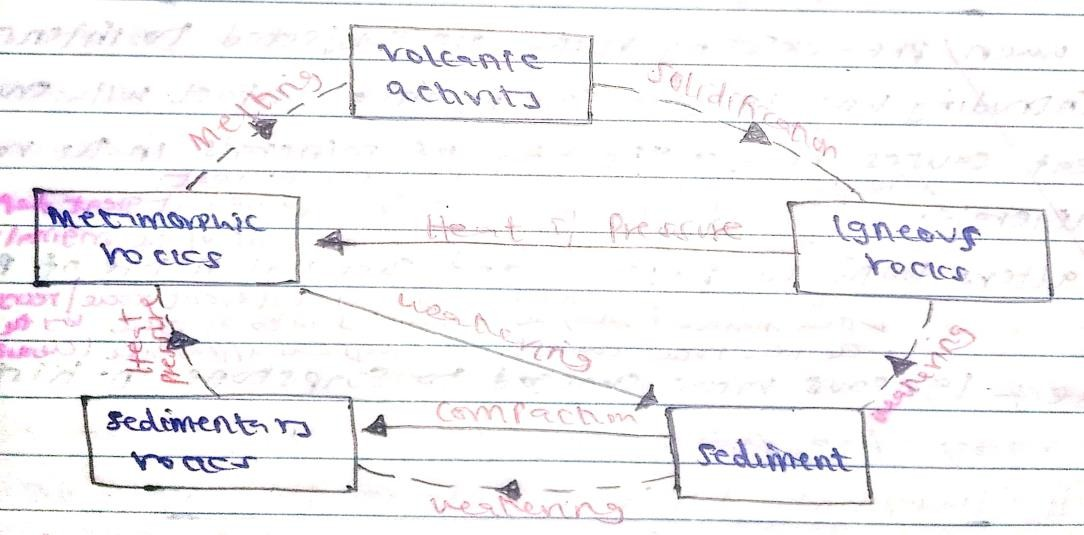 volcanic
activity
melting
solidification
Metamorphic
rocks
Heat & Pressure
Igneous
rocks
weathering
Heat
pressure
weathering
sedimentary
rocks
compaction
sediment
weathering